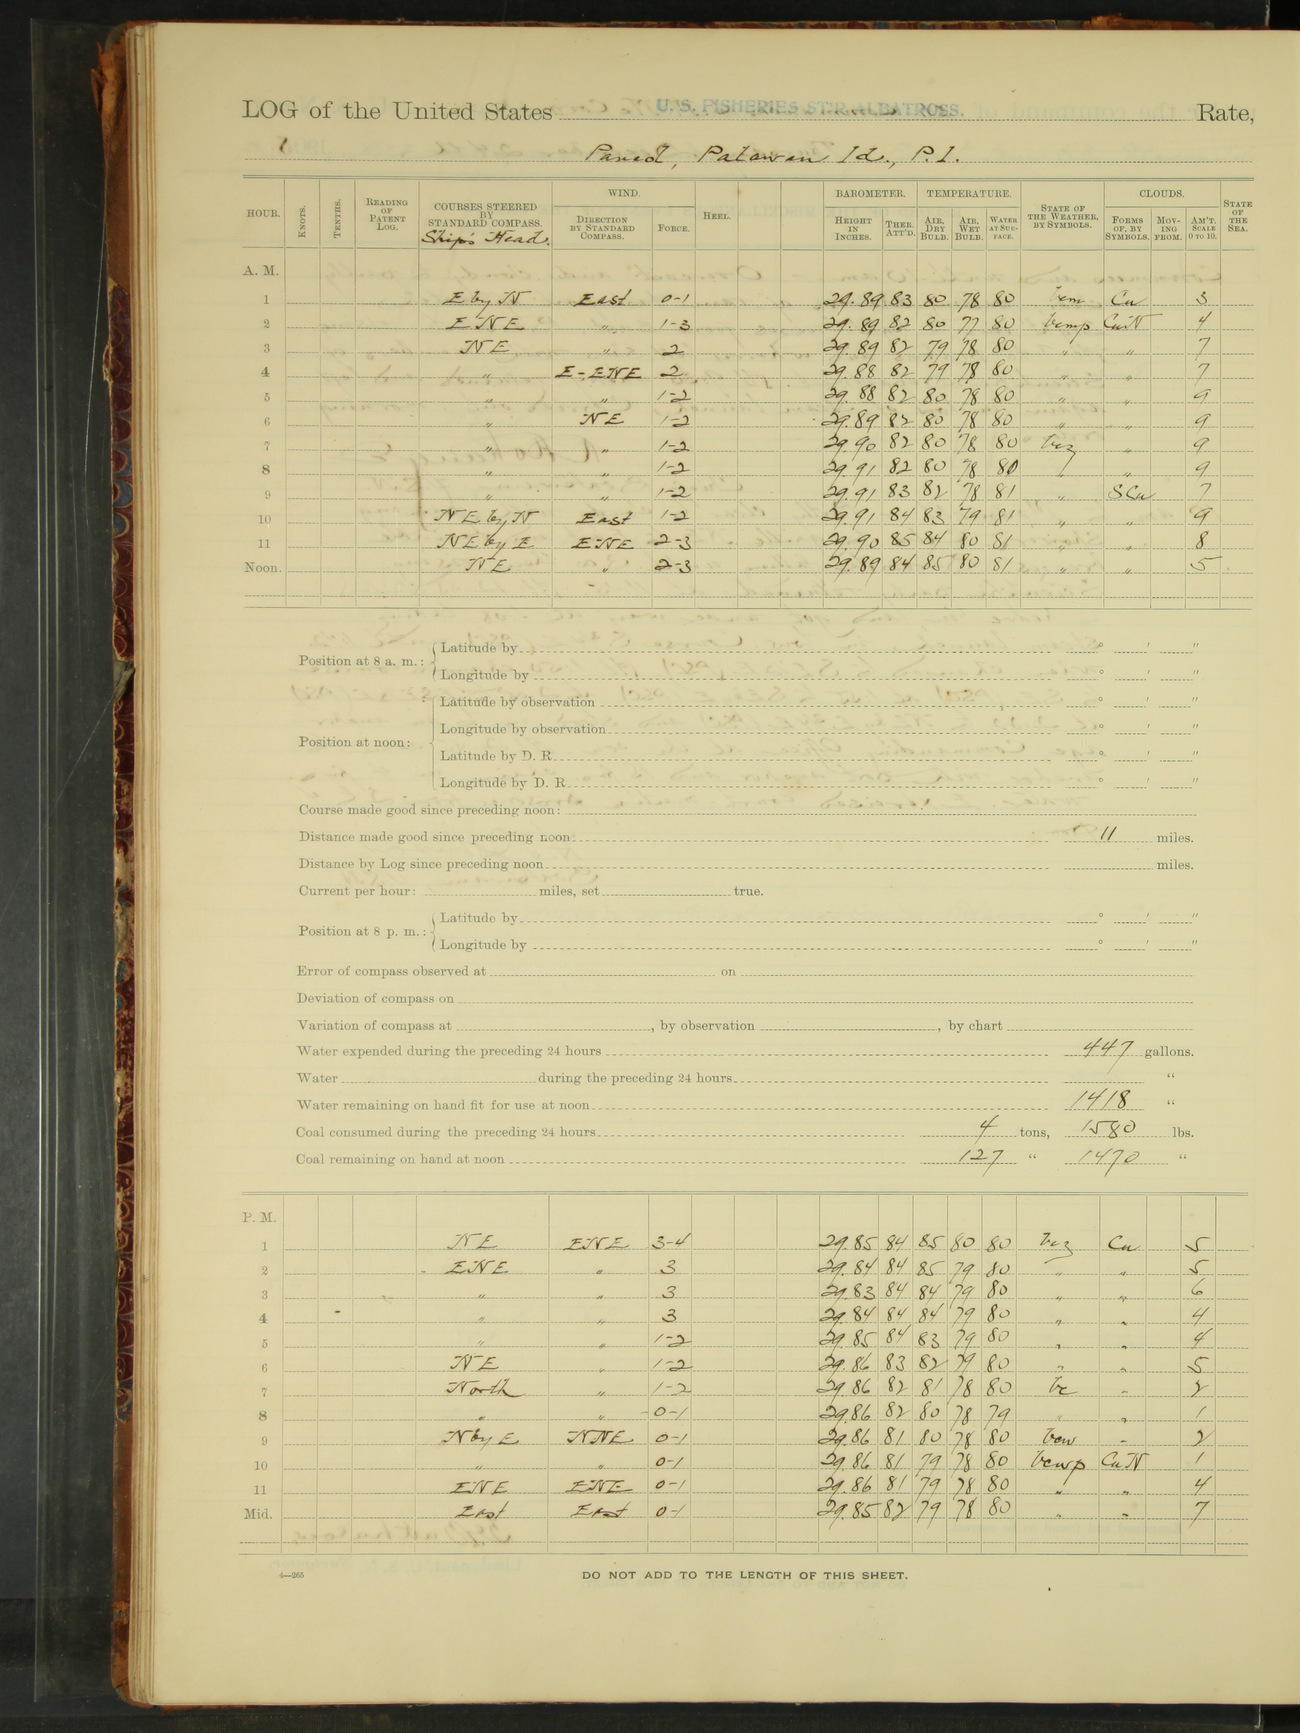 LOG of the United States U. S. FISHERIES STR. ALBATROSS. Rate,
Palawan Id., P.I.
HOUR. KNOTS. TENTHS. READING OF PATENT LOG. COURSES STEERED BY STANDARD COMPASS. Ship's Head. WIND. DIRECTION BY STANDARD COMPASS. FORCE. HEEL. BAROMETER. HEIGHT IN INCHES. THER. ATT'D. TEMPERATURE. AIR, DRY BULB. AIR, WET BULB. WATER AT SURFACE. STATE OF THE WEATHER, BY SYMBOLS. CLOUDS. FORMS OF, BY SYMBOLS. MOVING FROM. AM'T. SCALE 0 TO 10. STATE OF THE SEA.
A. M.
1 E by N East 0-1 29.89 83 80 78 80 bcm Cu 3
2 ENE " 1-3 29.89 82 80 77 80 bcmp CuN 4
3 NE " 2 29.89 82 79 78 80 " " 7
4 " E-ENE 2 29.88 82 79 78 80 " " 7
5 " " 1-2 29.88 82 80 78 80 " " 9
6 " NE 1-2 29.89 82 80 78 80 " " 9
7 " " 1-2 29.90 82 80 78 80 bcz " 9
8 " " 1-2 29.91 82 80 78 80 " " 9
9 " " 1-2 29.91 83 82 78 81 " SCu 7
10 NE by N East 1-2 29.91 84 83 79 81 " " 9
11 NE by E ENE 2-3 29.90 85 84 80 81 " " 8
Noon. NE " 2-3 29.89 84 85 80 81 " " 5
Position at 8 a. m.: Latitude by ° ' "
Longitude by ° ' "
Position at noon: Latitude by observation ° ' "
Longitude by observation ° ' "
Latitude by D. R. ° ' "
Longitude by D. R. ° ' "
Course made good since preceding noon:
Distance made good since preceding noon 11 miles.
Distance by Log since preceding noon miles.
Current per hour: miles, set true.
Position at 8 p. m.: Latitude by ° ' "
Longitude by ° ' "
Error of compass observed at on
Deviation of compass on
Variation of compass at , by observation , by chart
Water expended during the preceding 24 hours 447 gallons.
Water during the preceding 24 hours "
Water remaining on hand fit for use at noon 1418 "
Coal consumed during the preceding 24 hours 4 tons, 1580 lbs.
Coal remaining on hand at noon 127 " 1470 "
P. M.
1 NE ENE 3-4 29.85 84 85 80 80 bcz Cu 5
2 ENE " 3 29.84 84 85 79 80 " " 5
3 " " 3 29.83 84 84 79 80 " " 6
4 " " 3 29.84 84 84 79 80 " " 4
5 " " 1-2 29.85 84 83 79 80 " " 4
6 NE " 1-2 29.86 83 82 79 80 " " 5
7 North " 1-2 29.86 82 81 78 80 bc " 2
8 " " 0-1 29.86 82 80 78 79 " " 1
9 N by E NNE 0-1 29.86 81 80 78 80 bcw " 2
10 " " 0-1 29.86 81 79 78 80 bcwp CuN 1
11 ENE ENE 0-1 29.86 81 79 78 80 " " 4
Mid. East East 0-1 29.85 82 79 78 80 " " 7
4—265 DO NOT ADD TO THE LENGTH OF THIS SHEET.